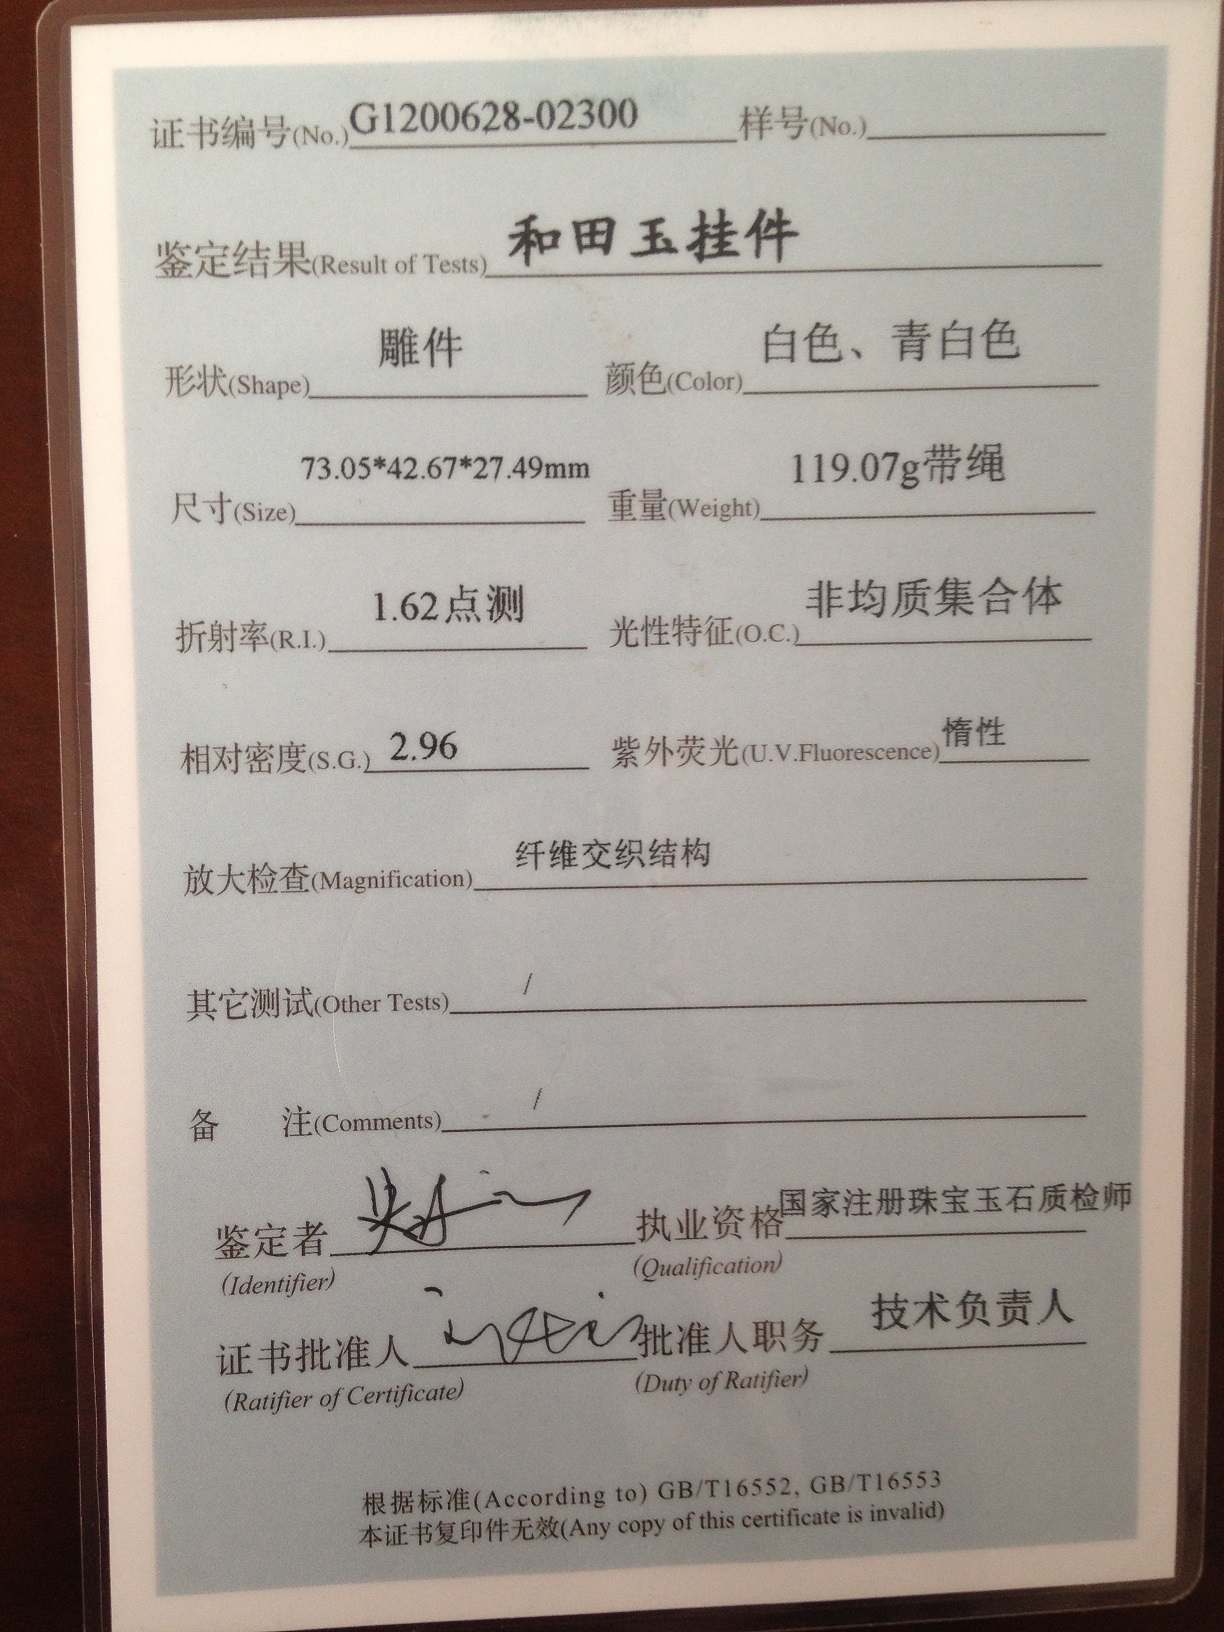 证书编号(No.) G1200628-02300 样号(No.)
鉴定结果(Result of Tests) 和田玉挂件
形状(Shape) 雕件 颜色(Color) 白色、青白色
尺寸(Size) 73.05*42.67*27.49mm 重量(Weight) 119.07g带绳
折射率(R.I.) 1.62点测 光性特征(O.C.) 非均质集合体
相对密度(S.G.) 2.96 紫外荧光(U.V.Fluorescence) 惰性
放大检查(Magnification) 纤维交织结构
其它测试(Other Tests) /
备 注(Comments) /
鉴定者 执业资格 国家注册珠宝玉石质检师
(Identifier) (Qualification)
证书批准人 批准人职务 技术负责人
(Ratifier of Certificate) (Duty of Ratifier)
根据标准(According to) GB/T16552, GB/T16553
本证书复印件无效(Any copy of this certificate is invalid)